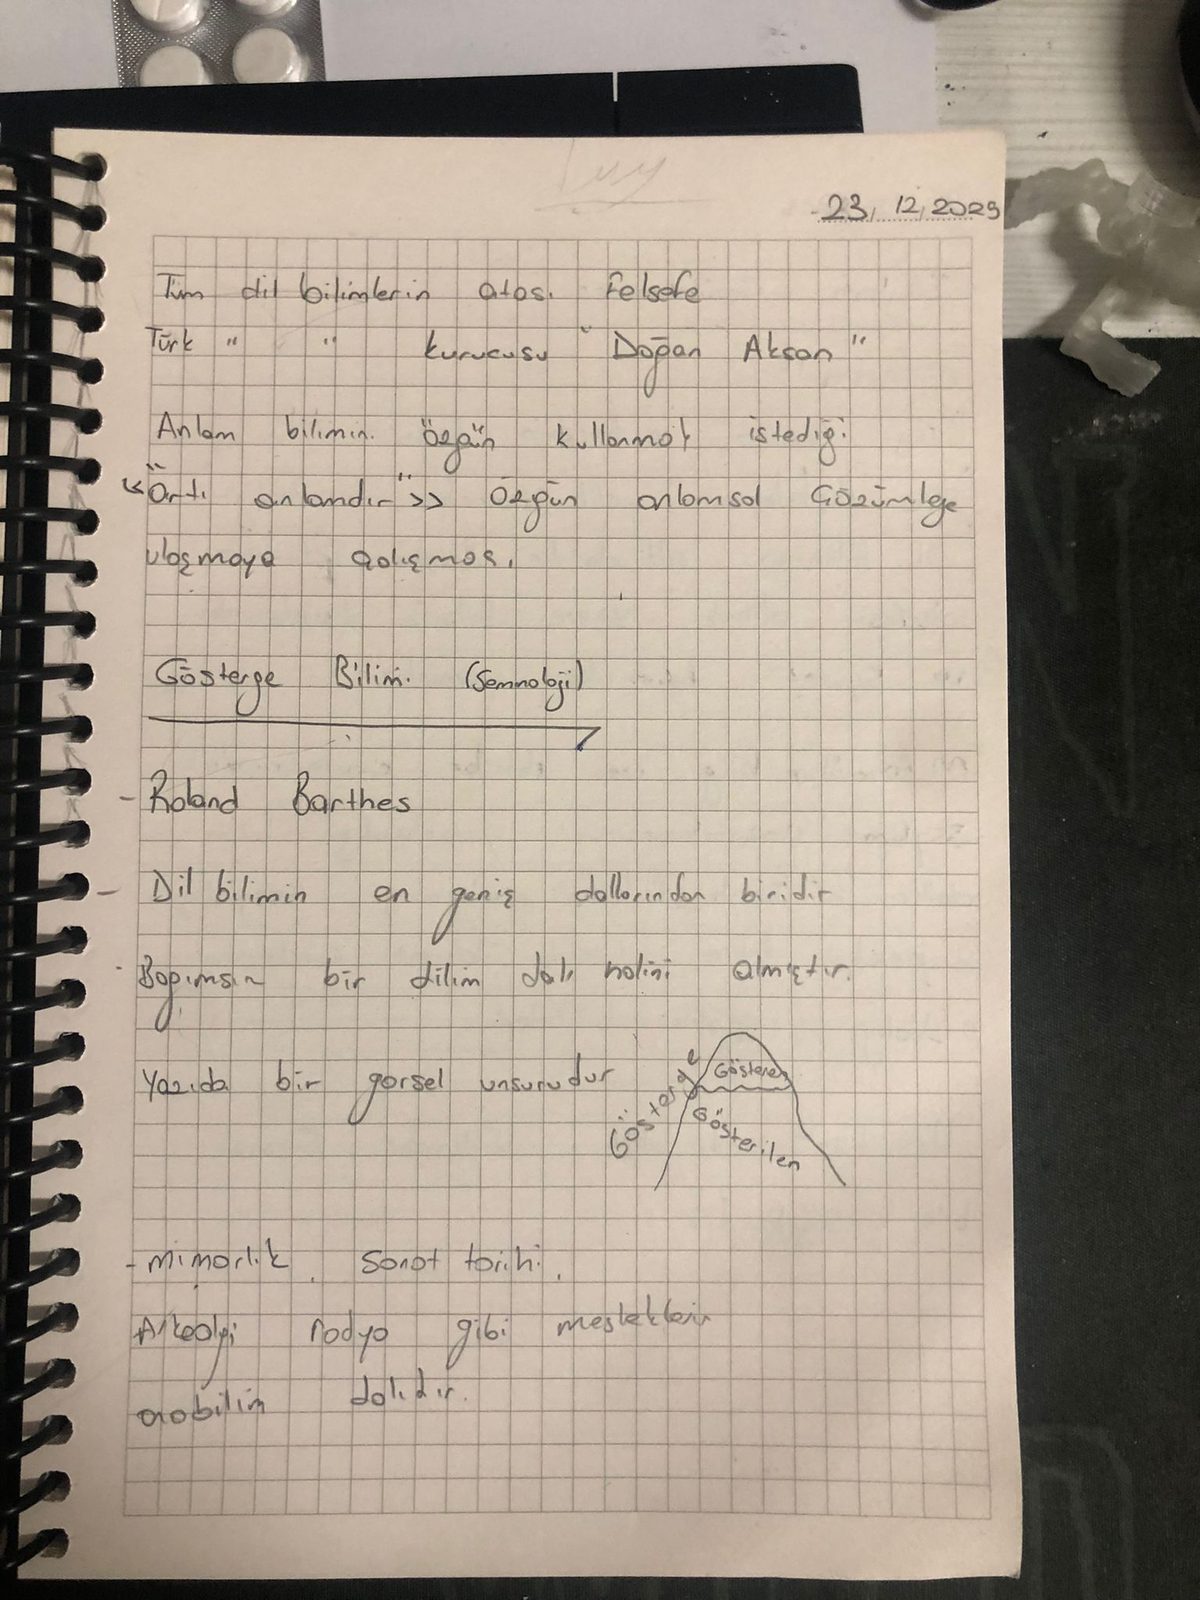 23.12.2025
Tüm dil bilimlerin atası Felsefe
Türk " " kurucusu "Doğan Aksan"
Anlam bilimin özgün kullanmak istediği
<<"Artı anlamdır">> Özgün anlamsal Çözümleye
ulaşmaya çalışması
Gösterge Bilimi (Semnoloji)
- Roland Barthes
- Dil bilimin en geniş dallarından biridir
- Bağımsın bir dilim dalı halini almıştır.
Yazıda bir görsel unsurudur
Gösterge
Gösteren
Gösterilen
- mimarlık, Sanat tarihi,
Arkeoloji radyo gibi mesleklerin
arabilim dalıdır.